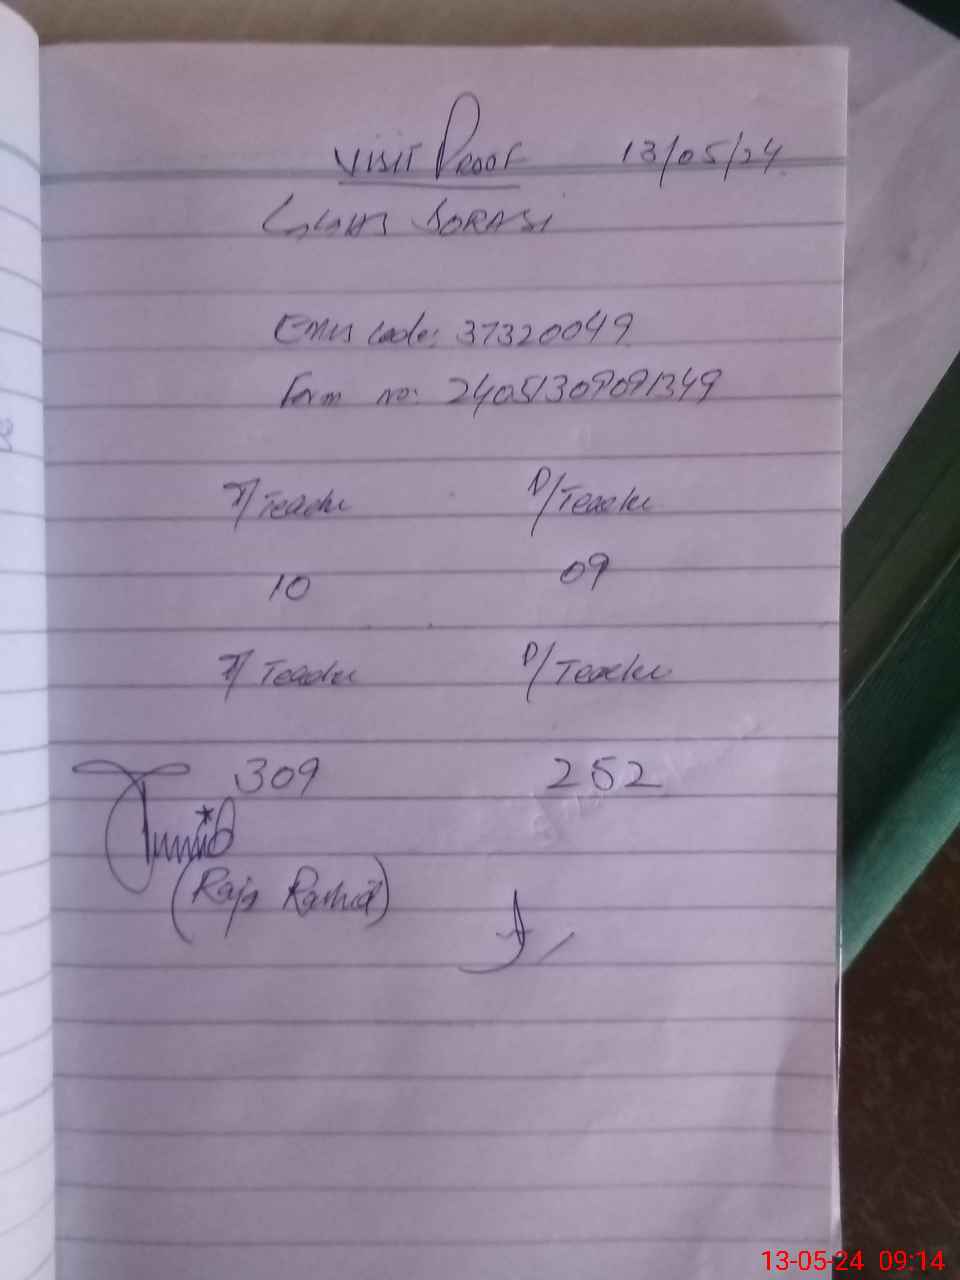 VISIT PROOF 13/05/24
SORASI
EMIS code: 37320049
Form no: 24051309091349
T/Teacher P/Teacher
10 09
T/Teacher P/Teacher
309 252
(Raja Rashid)
13-05-24 09:14